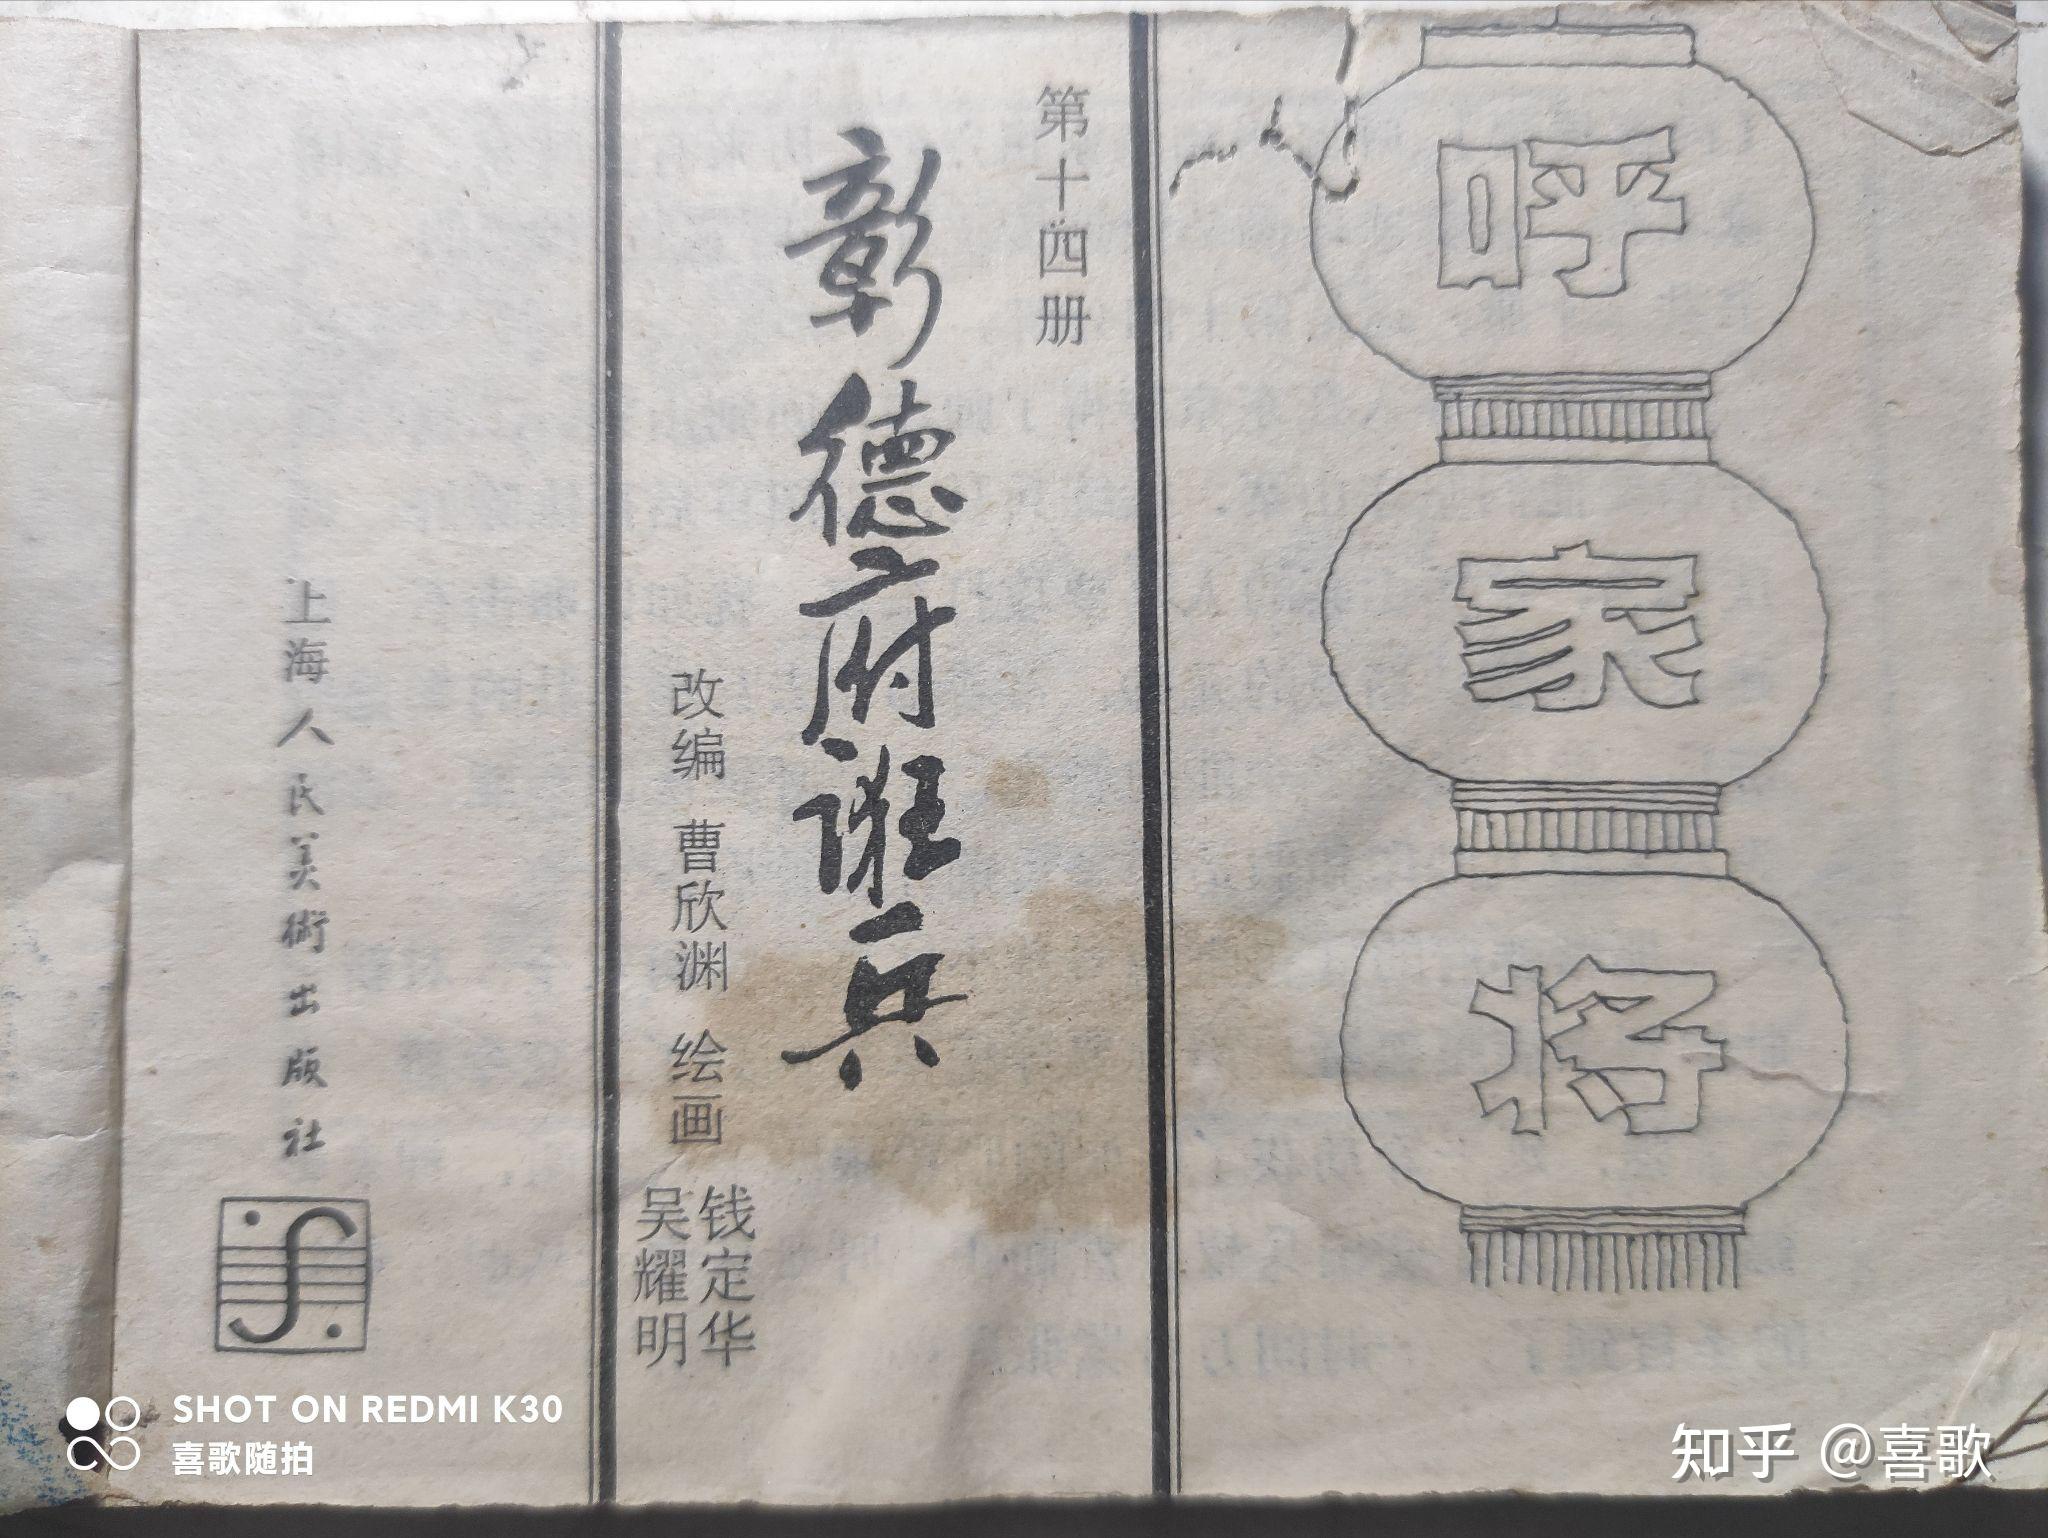 呼家将
第十四册
彰德府诳兵
改编 曹欣渊 绘画 钱定华
吴耀明
上海人民美術出版社
SHOT ON REDMI K30
喜歌随拍
知乎 @喜歌